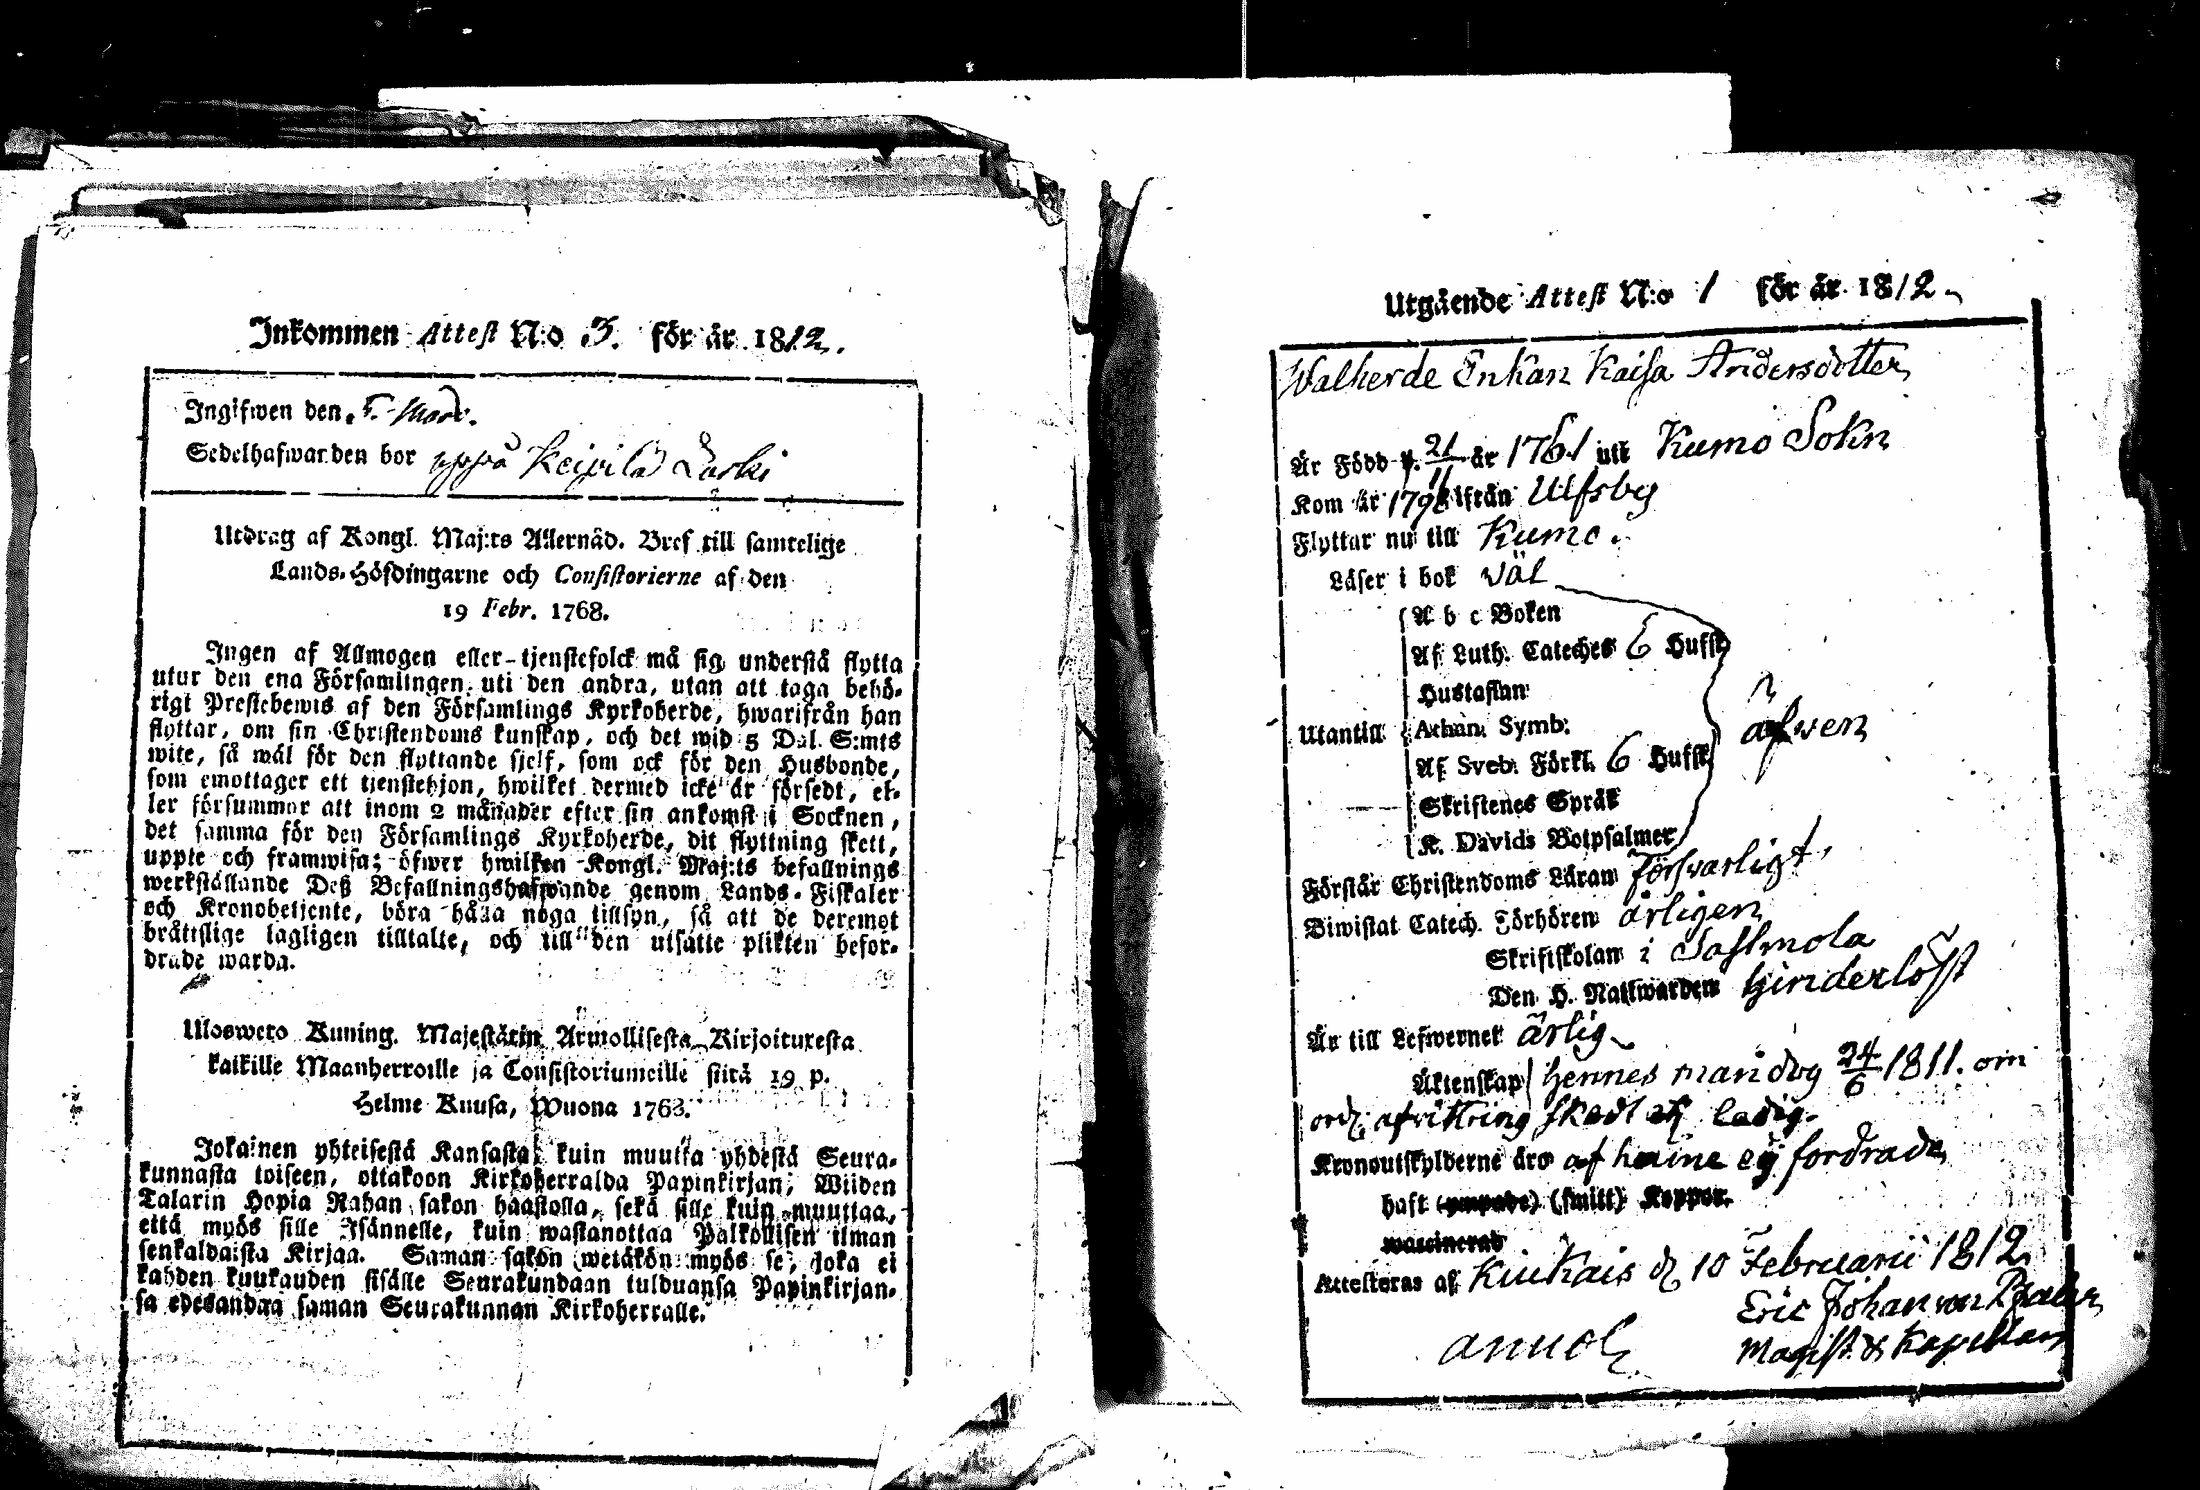 Inkommen Attest N:o 3. för år 1812.
Ingifwen den 5. Mars.
Sedelhafwarden bor uppå Keipilä
Utdrag af Kongl. Maj:ts Allernåd. Bref till samtelige
Lands-Höfdingarne och Consistorierne af den
19 Febr. 1768.
Ingen af Allmogen eller tjenstefolck må sig understå flytta
utur den ena Församlingen uti den andra, utan att taga behö-
rigt Prestebewis af den Församlings Kyrkoherde, hwarifrån han
flyttar, om sin Christendoms kunskap, och det wid 5 Dal. S:mts
wite, så wäl för den flyttande sjelf, som ock för den Husbonde,
som emottager ett tjenstehjon, hwilket dermed icke är försedt, el-
ler försummar att inom 2 månader efter sin ankomst i Socknen,
det samma för den Församlings Kyrkoherde, dit flyttning skett,
uppte och framwisa; öfwer hwilken Kongl. Maj:ts befallnings
werkställande Deß Befallningshafwande genom Lands-Fiskaler
och Kronobetjente, böra hålla noga tillsyn, så att de deremot
bråttslige lagligen tilltalte, och till den utsatte plikten befor-
drade warda.
Ulosweto Kuning. Majestätin Armollisesta Kirjoituxesta
kaikille Maanherroille ja Consistoriumeille siitä 19 p.
Helme Kuusa, Wuona 1768.
Jokainen yhteisestä Kansasta, kuin muutta yhdestä Seura-
kunnasta toiseen, ottakoon Kirkoherralda Papinkirjan, Wiiden
Talarin Hopia Rahan sakon haastolla, sekä sille kuin muuttaa,
että myös sille Isännelle, kuin wastanottaa Palkollisen ilman
senkaldaista Kirjaa. Saman sakon wetäkön myös se, joka ei
kahden kuukauden sisälle Seurakundaan tulduansa Papinkirjan-
sa edesandaa saman Seurakunnan Kirkoherralle.
Utgående Attest N:o 1 för år 1812.
Walherde Enkan Kaisa Andersdotter
Är Född d. 21/11 år 1761 uti Kumo Sokn
Kom år 1798 ifrån Ulfsby
Flyttar nu till Kumo.
Läser i bok väl
A b c Boken
Af Luth. Cateches 6 Hufst
Hustaflan
Utantill Athan. Symb: äfven
Af Sveb. Förkl. 6 Hufst
Skriftenes Språk
K. Davids Botpsalmer
Förstår Christendoms Läran Försvarligt
Biwistat Catech. Förhören årligen
Skriftskolan i Sastmola
Den H. Nattwarden hinderlöst
Är till Lefwernet ärlig
Äktenskap hennes man dog 24/6 1811. om
ord: afvittring skedt ledig.
Kronoutskylderne äro af henne ej fordrade
haft (ympade) (smitt) Koppor.
waccinerad
Attesteras af Kiukais d. 10 Februarii 1812
Eric Johan von Pfaler
Magist. & Kapellan